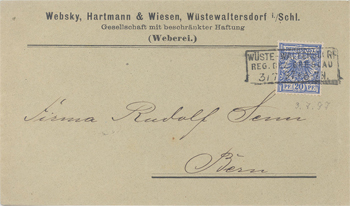 Websky, Hartmann & Wiesen, Wüstewaltersdorf i/Schl.
Gesellschaft mit beschränkter Haftung
(Weberei.)
REG.
3/7
20
Firma Rudolf Senn
Bern